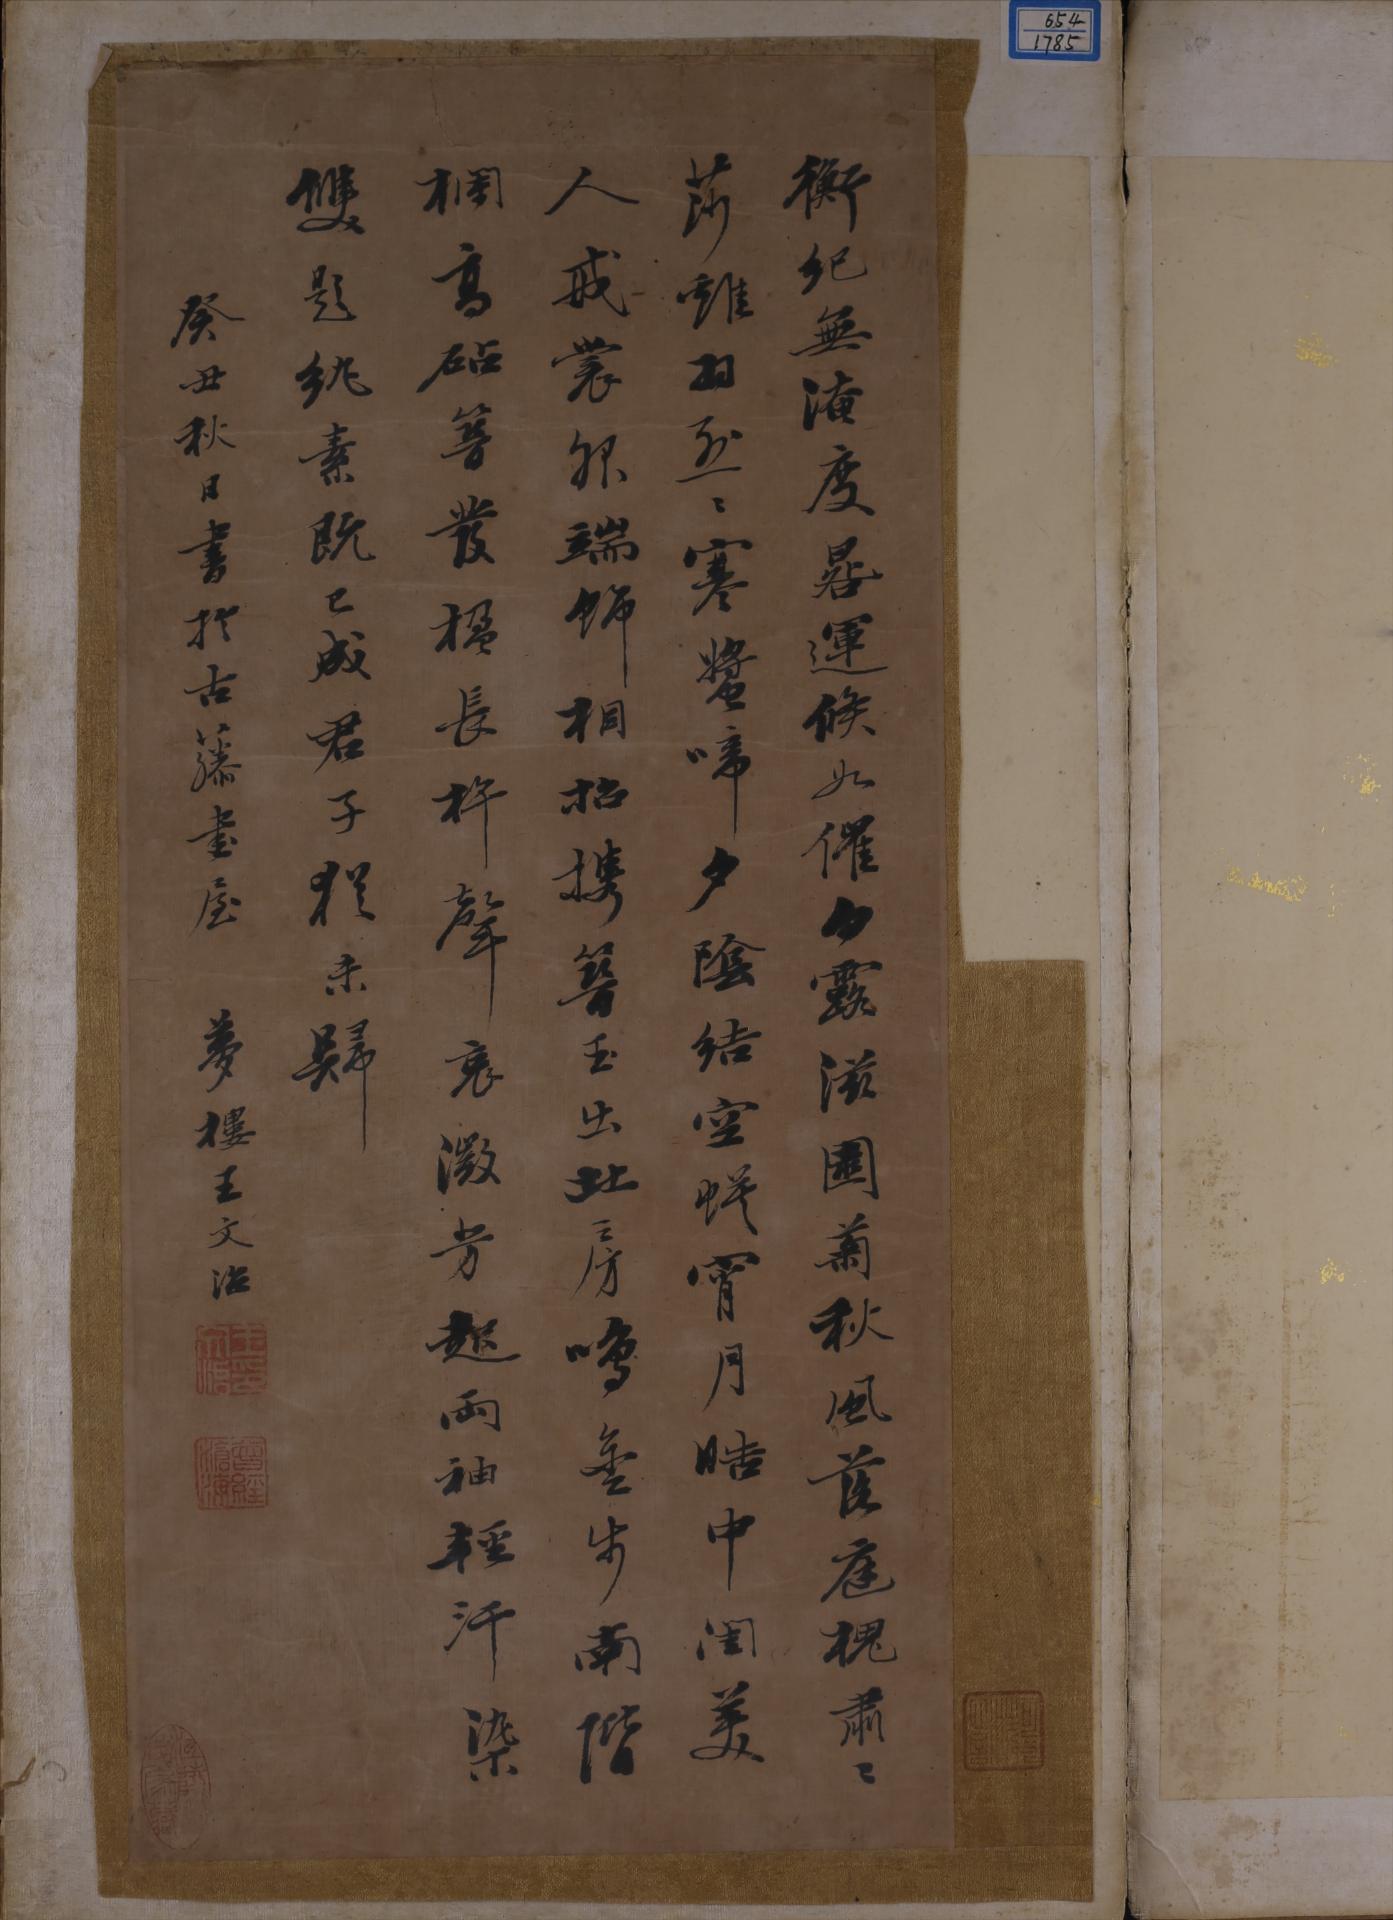 衡紀無淹度晷運倐如催夕露滋園菊秋風落庭槐肅〻
莎雞羽烈〻寒螿啼夕陰結空幙宵月皓中閨美
人戒裳服端飾相招攜簪玉出北房鳴金步南階
櫩高砧響發楹長杵聲哀微芳起兩袖輕汗染
雙題紈素既已成君子猶未歸
癸丑秋日書於古藤書屋 夢樓王文治
王文治印
曾經滄海
654
1785